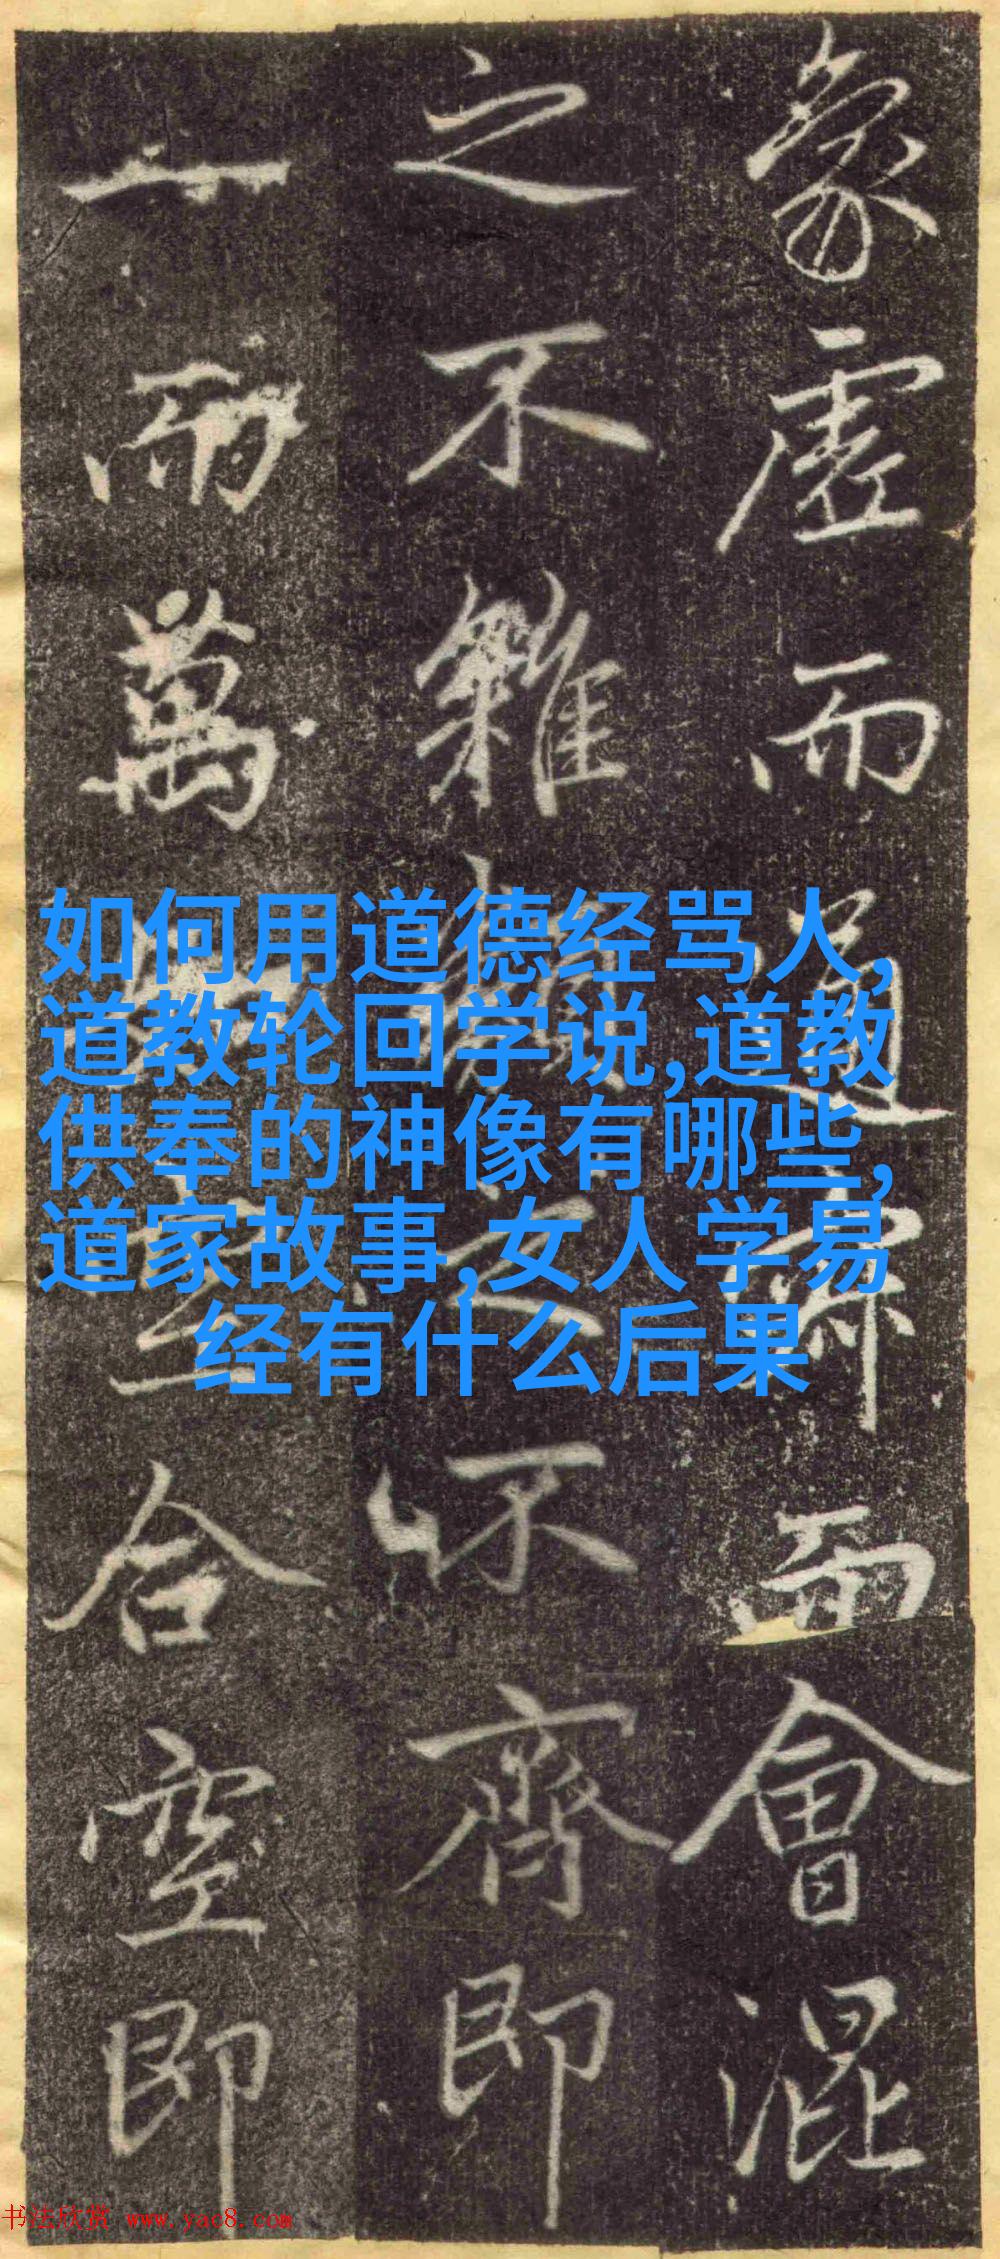 象虚而通寂而會混
之不雜類之不齊即
一而萬合空即
如何用道德经骂人,
道教轮回学说,道教
供奉的神像有哪些,
道家故事,女人学易
经有什么后果
书法欣赏 www.yac8.com